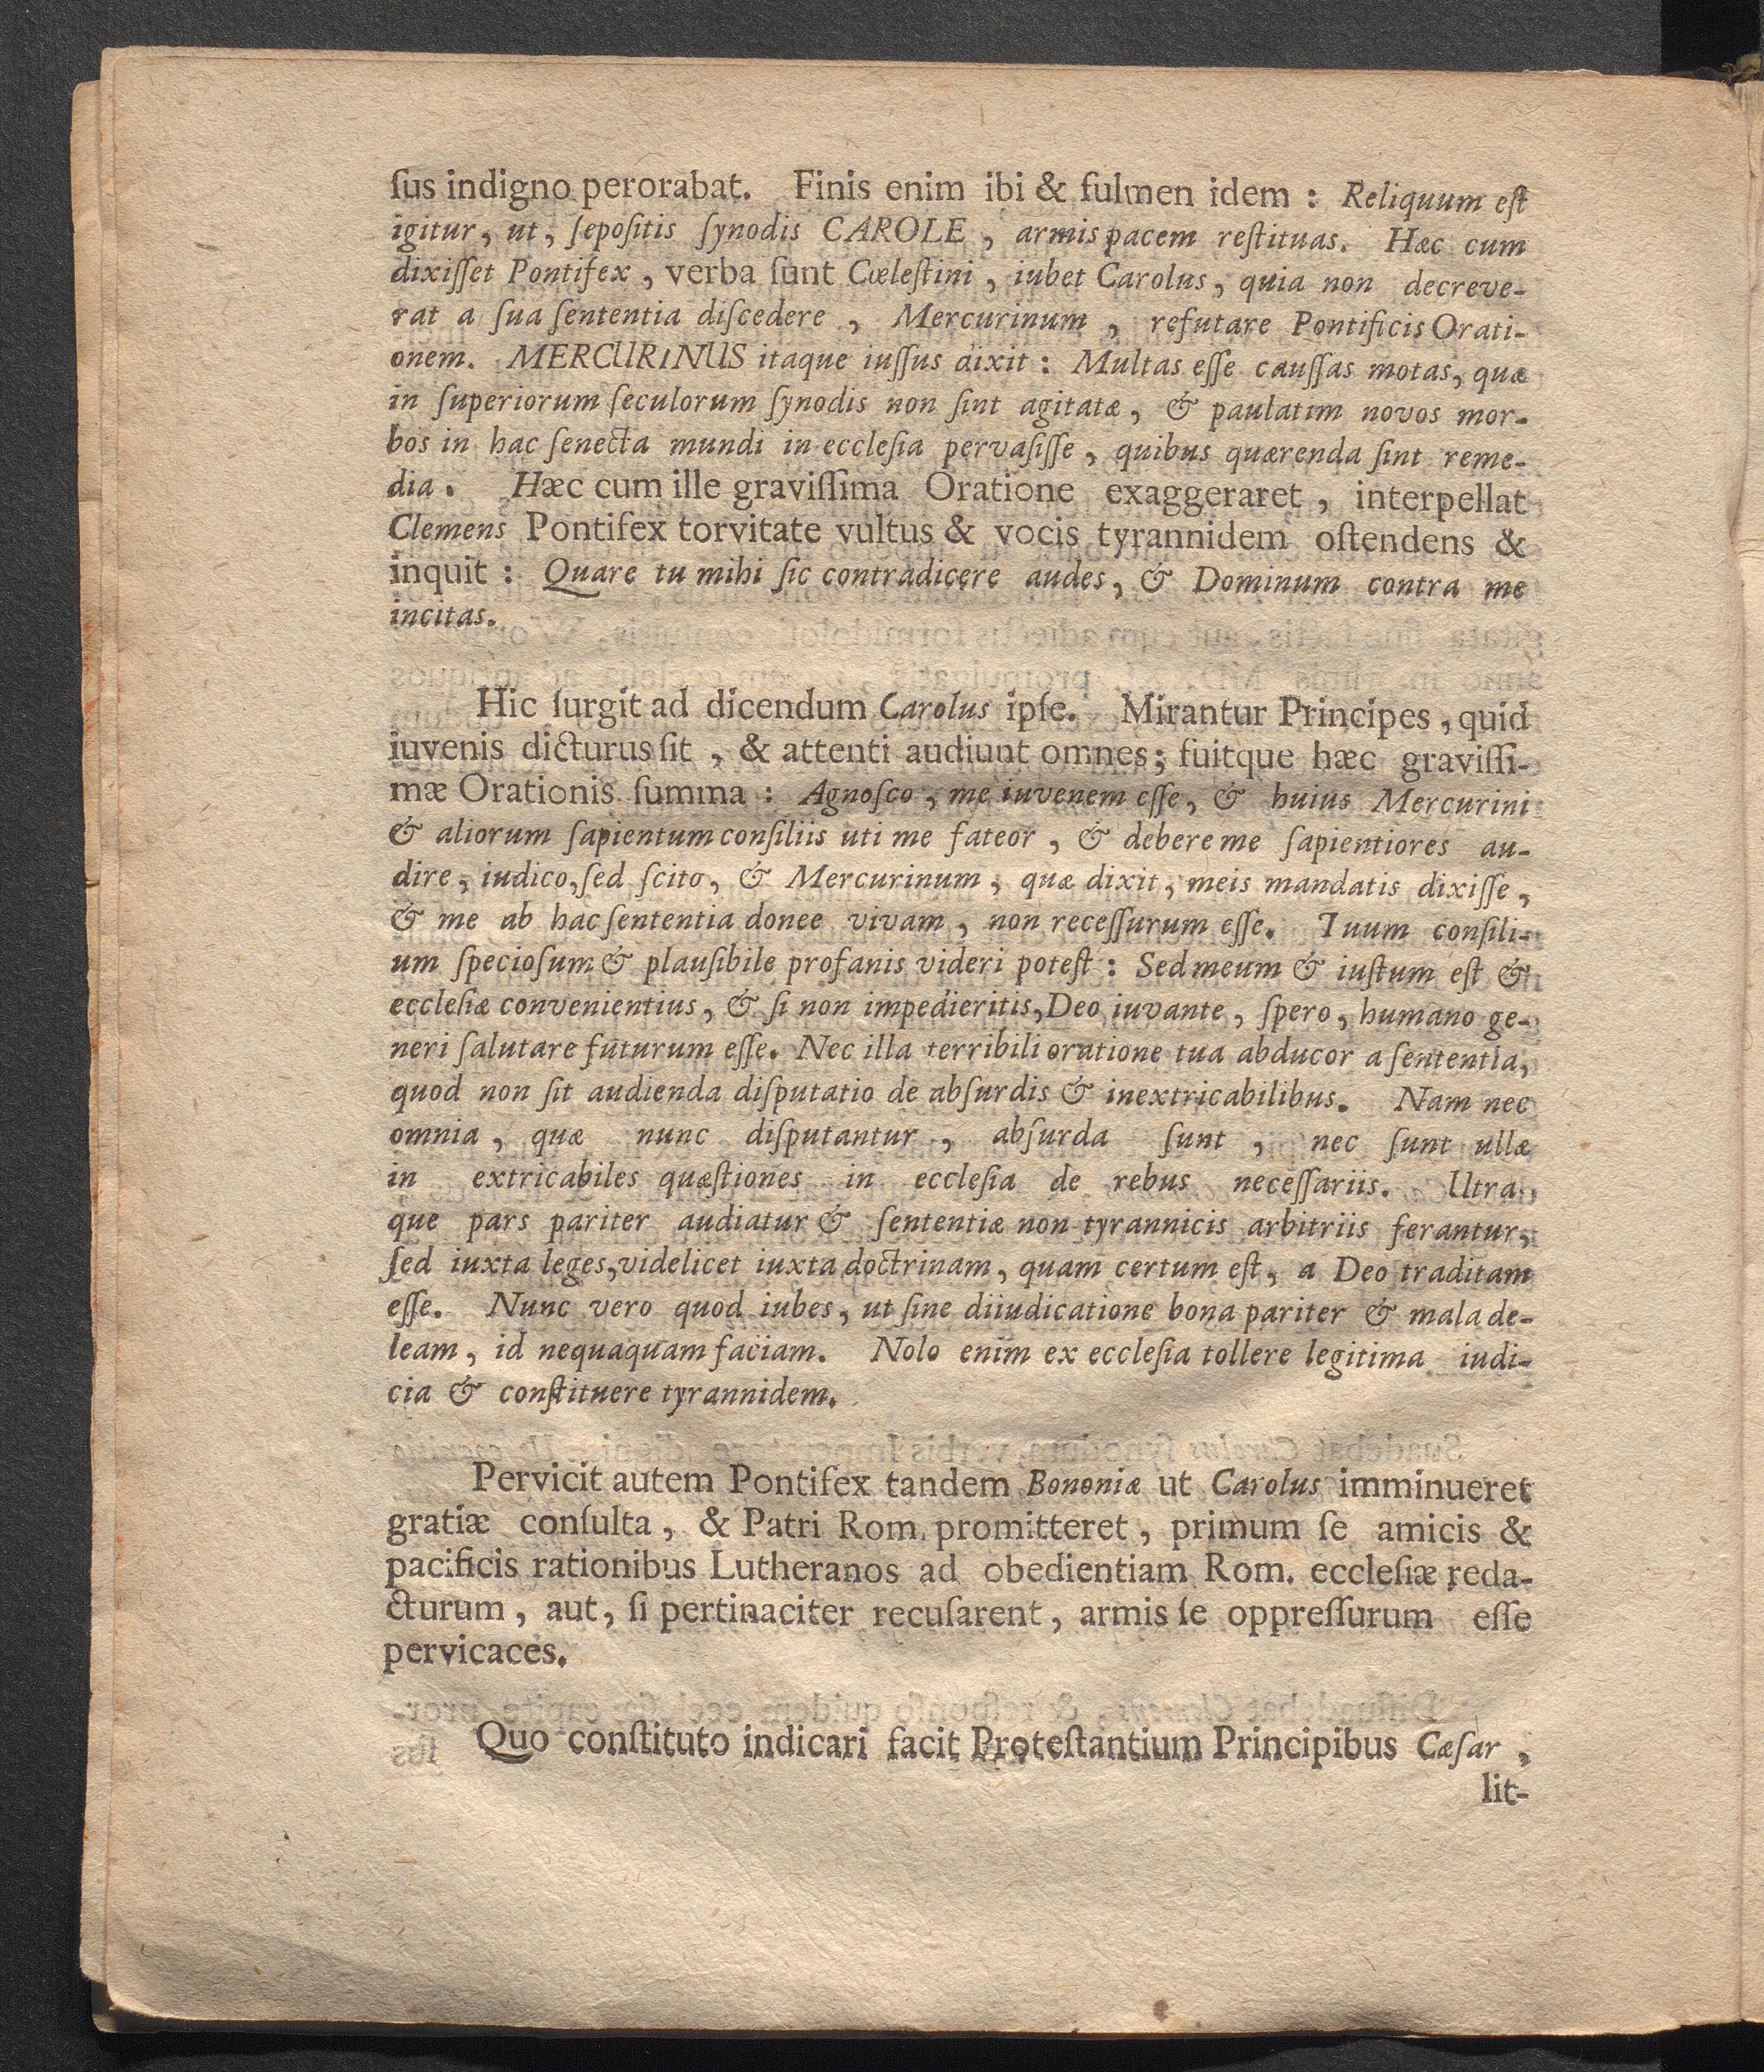 ſus indigno perorabat. Finis enim ibi & fulmen idem : Reliquum eſt
igitur, ut, ſepoſitis ſynodis CAROLE, armis pacem reſtituas. Hæc cum
dixiſſet Pontifex, verba ſunt Cœleſtini, iubet Carolus, quia non decreve-
rat a ſua ſententia diſcedere, Mercurinum, refutare Pontificis Orati-
onem. MERCURINUS itaque iuſſus dixit : Multas eſſe cauſſas motas, quæ
in ſuperiorum ſeculorum ſynodis non ſint agitatæ, & paulatim novos mor-
bos in hac ſenecta mundi in eccleſia pervaſiſſe, quibus quærenda ſint reme-
dia. Hæc cum ille graviſſima Oratione exaggeraret, interpellat
Clemens Pontifex torvitate vultus & vocis tyrannidem oſtendens &
inquit : Quare tu mihi ſic contradicere audes, & Dominum contra me
incitas.
Hic ſurgit ad dicendum Carolus ipſe. Mirantur Principes, quid
iuvenis dicturus ſit, & attenti audiunt omnes; fuitque hæc graviſſi-
mæ Orationis ſumma : Agnoſco, me iuvenem eſſe, & huius Mercurini
& aliorum ſapientum conſiliis uti me fateor, & debere me ſapientiores au-
dire, iudico, ſed ſcito, & Mercurinum, quæ dixit, meis mandatis dixiſſe,
& me ab hac ſententia donee vivam, non receſſurum eſſe. Tuum conſili-
um ſpecioſum & plauſibile profanis videri poteſt : Sed meum & iuſtum eſt &
eccleſiæ convenientius, & ſi non impedieritis, Deo iuvante, ſpero, humano ge-
neri ſalutare futurum eſſe. Nec illa terribili oratione tua abducor a ſententia,
quod non ſit audienda diſputatio de abſurdis & inextricabilibus. Nam nec
omnia, quæ nunc diſputantur, abſurda ſunt, nec ſunt ullæ
in extricabiles quæſtiones in eccleſia de rebus neceſſariis. Utra
que pars pariter audiatur & ſententiæ non tyrannicis arbitriis ferantur,
ſed iuxta leges, videlicet iuxta doctrinam, quam certum eſt, a Deo traditam
eſſe. Nunc vero quod iubes, ut ſine diiudicatione bona pariter & mala de-
leam, id nequaquam faciam. Nolo enim ex eccleſia tollere legitima iudi-
cia & conſtituere tyrannidem.
Pervicit autem Pontifex tandem Bononiæ ut Carolus imminueret
gratiæ conſulta, & Patri Rom. promitteret, primum ſe amicis &
pacificis rationibus Lutheranos ad obedientiam Rom. eccleſiæ reda-
cturum, aut, ſi pertinaciter recuſarent, armis ſe oppreſſurum eſſe
pervicaces.
Quo conſtituto indicari facit Proteſtantium Principibus Cæſar,
lit-